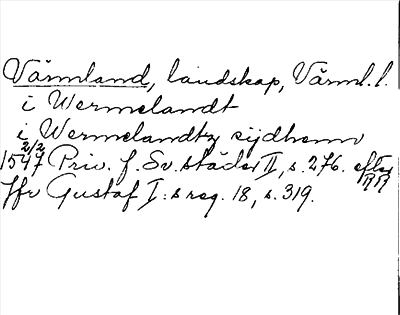 Värmland, landskap, Värml.l.
i Wermelandt
i Wermelandtz sijdhenn
1547 2/2 Priv. f. Sv. städer II, s. 276. efter RR
Jfr Gustaf I:s reg. 18, s. 319.